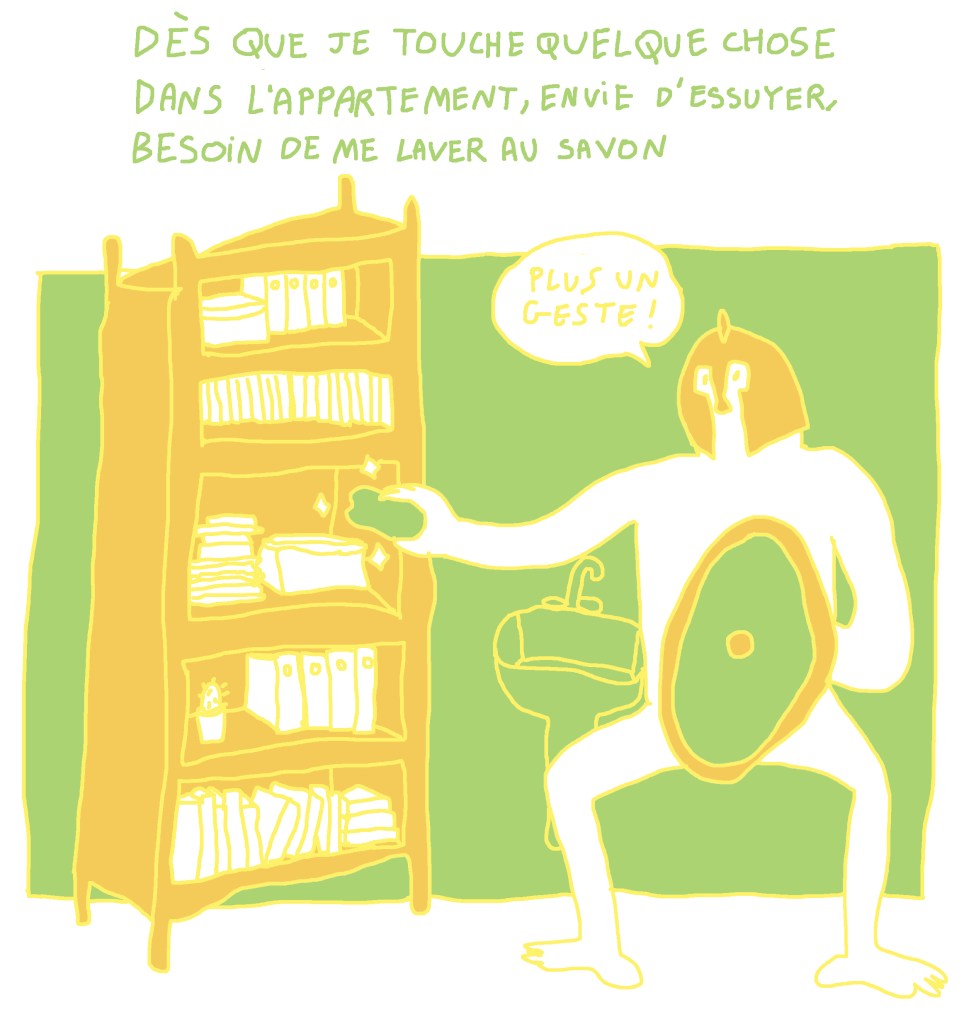 DÈS QUE JE TOUCHE QUELQUE CHOSE
DANS L'APPARTEMENT, ENVIE D'ESSUYER,
BESOIN DE ME LAVER AU SAVON
PLUS UN
GESTE!